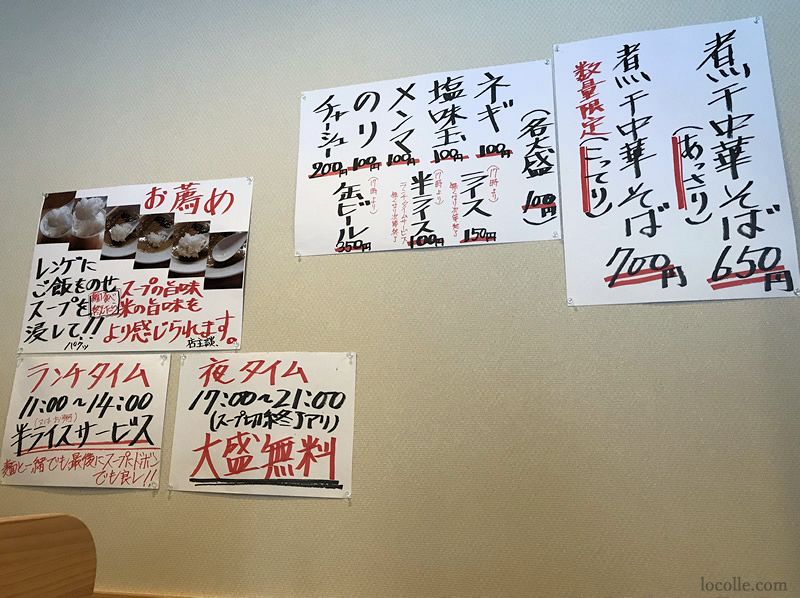 煮干中華そば
(あっさり)
650円
煮干中華そば
数量限定
(こってり)
700円
(各大盛 100円)
ネギ 100円
塩味玉 100円
メンマ 100円
のり 100円
チャーシュー 200円
ライス 150円
(17時より)
半ライス 100円
ランチタイムサービス
缶ビール 350円
(17時より)
お薦め
レンゲに
ご飯をのせ
スープを
浸して!!
パクッ
スープの旨味
米の旨味も
より感じられます。
店主談、
ランチタイム
11:00~14:00
半ライスサービス
麺と一緒でも最後にスープにドボン
でも良し!!
夜タイム
17:00~21:00
(スープ切れ終了アリ)
大盛無料
locolle.com